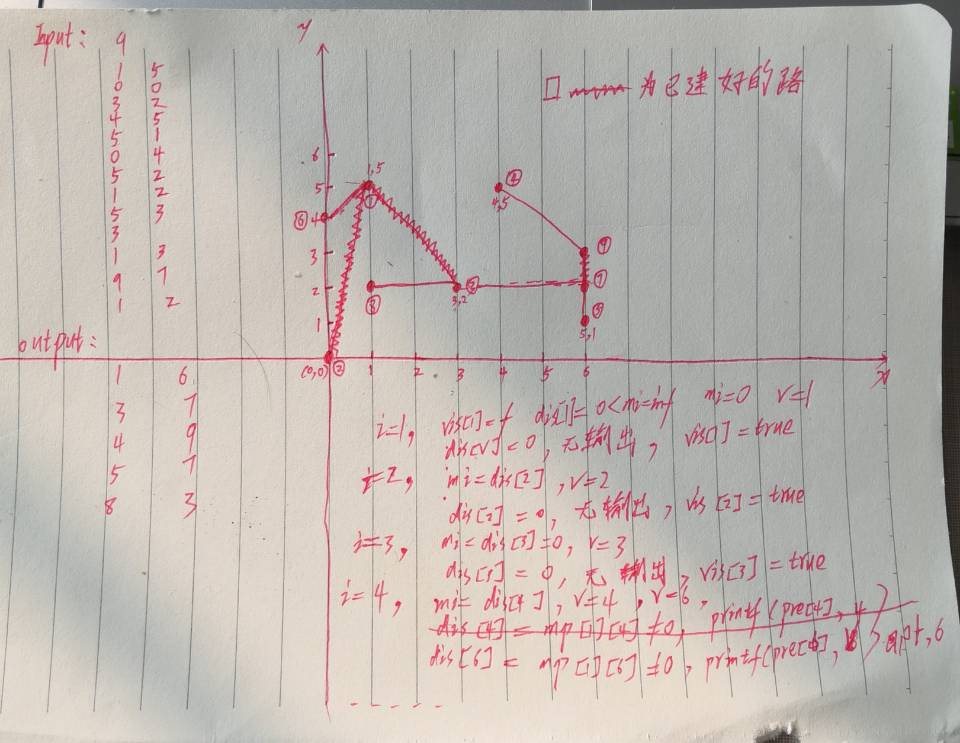 Input: 9
1 5
0 0
3 2
4 5
5 1
0 4
5 2
1 2
5 3
3
1 3
9 7
1 2
output:
1 6
3 7
4 9
5 7
8 3
y
为已建好的路
6
5
4
3
2
1
1,5
①
⑥
④
4,5
⑨
⑦
⑧
②
3,2
⑤
5,1
(0,0) ③ 1 2 3 4 5 6 x
i=1, vis[1]=f dis[1]=0<mi=inf mi=0 v=1
dis[v]=0, 无输出, vis[]=true
i=2, mi=dis[2], v=2
dis[2]=0, 无输出, vis[2]=true
i=3, mi=dis[3]=0, v=3
dis[3]=0, 无输出, vis[3]=true
i=4, mi=dis[4], v=4, v=6,
dis[4]=mp[1][4]≠0, printf(pre[4],4)
dis[6]=mp[1][6]≠0, printf(pre[6],6)